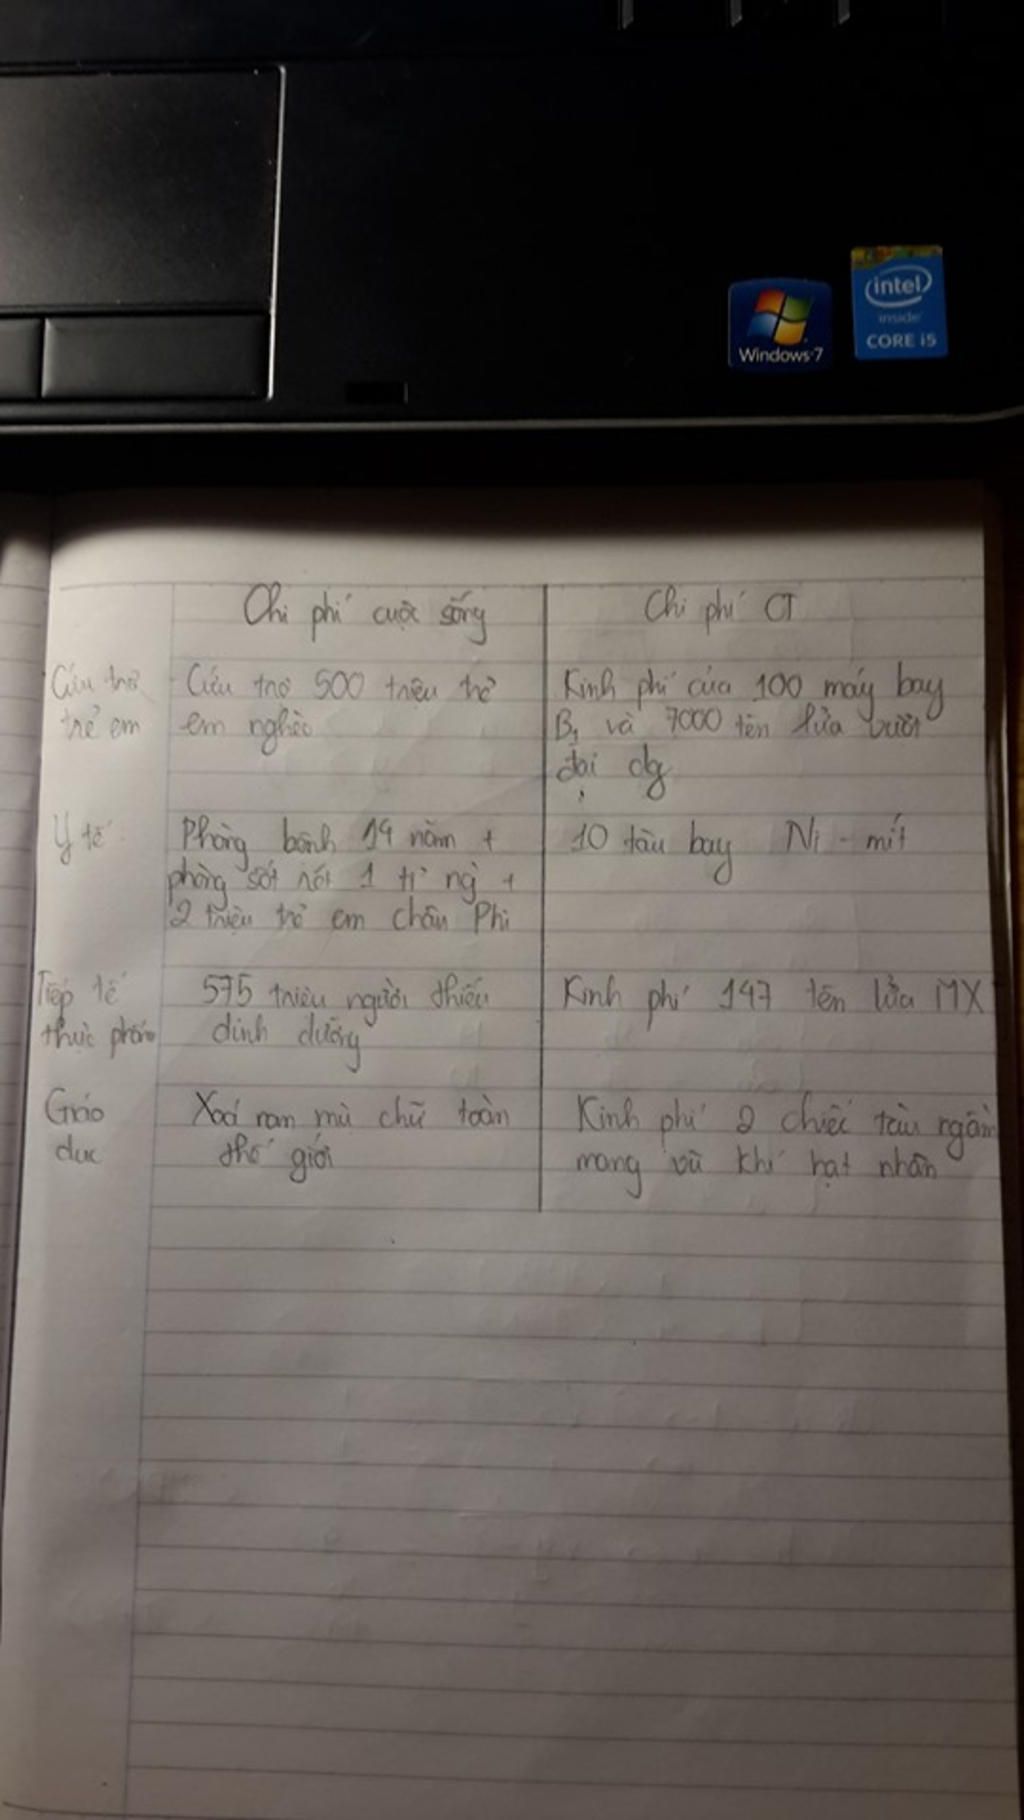 Windows 7
intel
inside
CORE i5
Chi phí cuộc sống
Chi phí CT
Cứu trợ
trẻ em
Cứu trợ 500 triệu trẻ
em nghèo
Kinh phí của 100 máy bay
B1 và 7000 tên lửa vượt
đại dg
Y tế
Phòng bệnh 14 năm +
phòng sốt rét 1 tỉ ng +
2 triệu trẻ em châu Phi
10 tàu bay Ni - mít
Tiếp tế
thực phẩm
575 triệu người thiếu
dinh dưỡng
Kinh phí 147 tên lửa MX
Giáo
dục
Xoá nạn mù chữ toàn
thế giới
Kinh phí 2 chiếc tàu ngầm
mang vũ khí hạt nhân